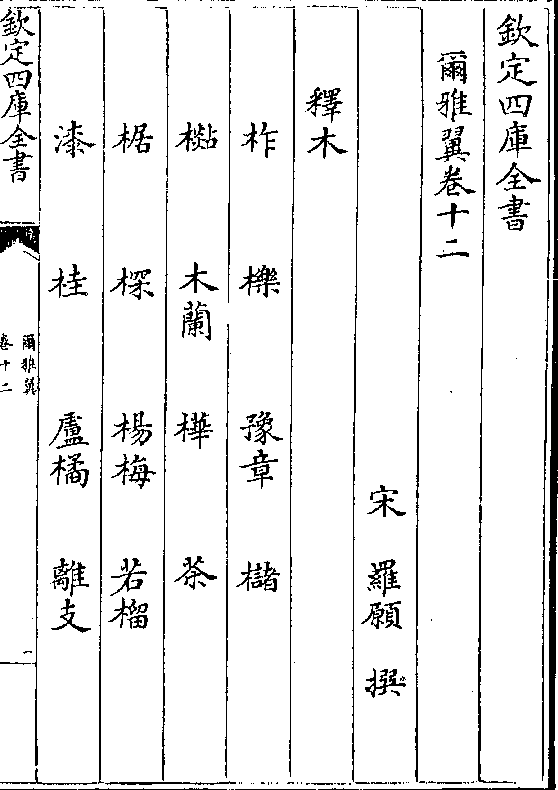 欽定四庫全書
爾雅翼卷十二
宋 羅願 撰
釋木
柞 櫟 豫章 櫧
樧 木蘭 樺 荼
椐 棎 楊梅 若榴
漆 桂 盧橘 離支
欽定四庫全書
爾雅翼
卷十二
一